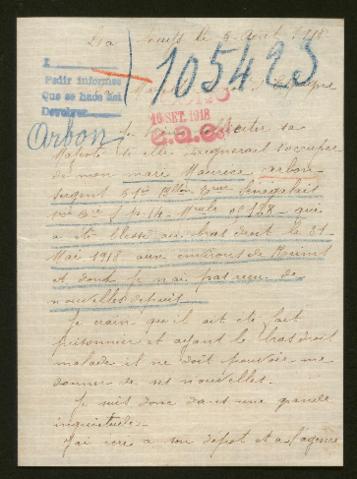 La le 9 Août 1918
105423
I
Pedir informes
Que se hace
Devolver
Arbon
16 SET. 1918
Je
sa
Majesté si elle daignerait s'occuper
de mon mari Maurice Arbon
sergent Sénégalais
S. P. 14 - Mle nº 128 - qui
a été blessé au bras droit le 31
Mai 1918 aux environs de Reims
et dont je n'ai pas reçu de
nouvelles depuis.
Je crain qu'il ait été fait
prisonnier et ayant le bras droit
malade il ne doit pouvoir me
donner de ses nouvelles.
Je suis donc dans une grande
inquiétude.
J'ai écri a son dépot et a l'agence